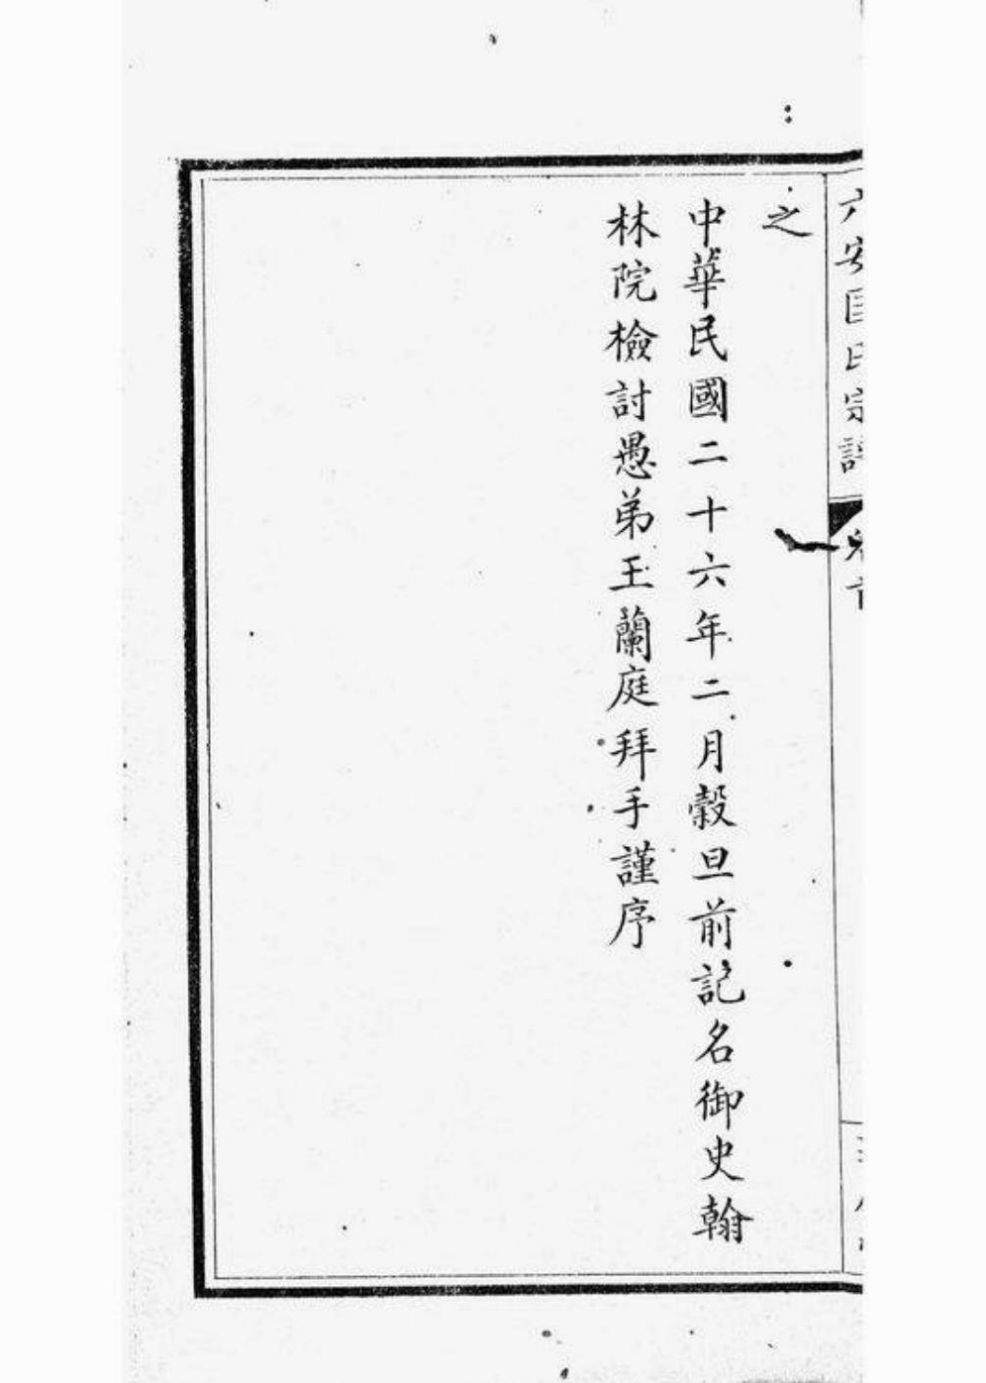 六安匡氏宗譜 卷首
之
中華民國二十六年二月穀旦前記名御史翰
林院檢討愚弟王蘭庭拜手謹序